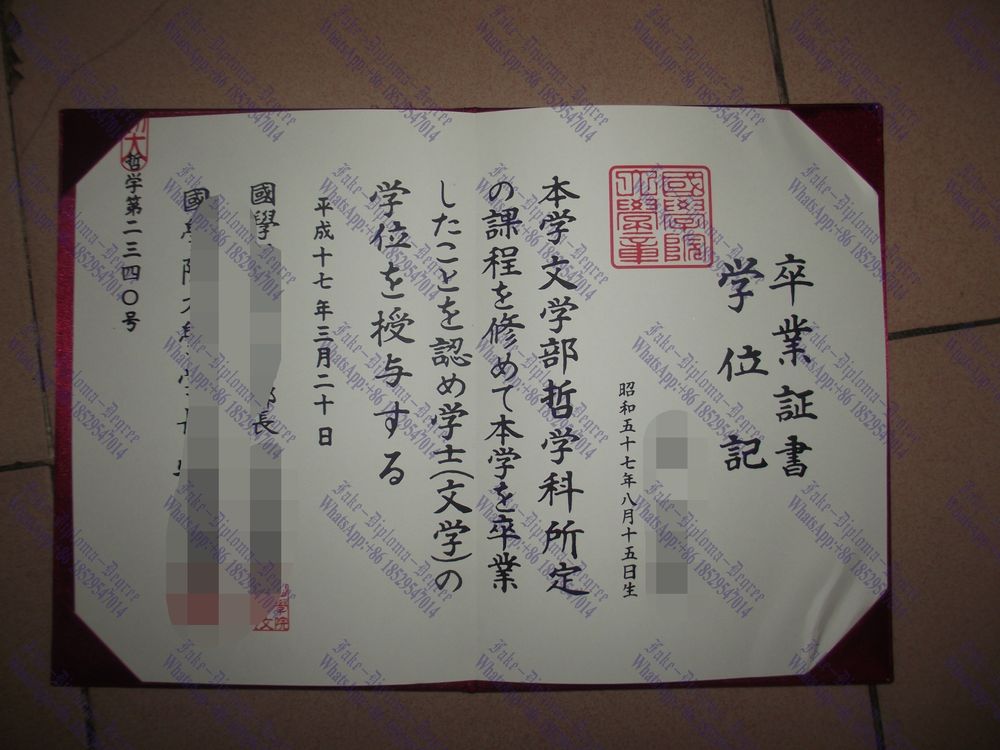 卒業証書
学位記
國學院大學章
昭和五十七年八月十五日生
本学文学部哲学科所定
の課程を修めて本学を卒業
したことを認め学士(文学)の
学位を授与する
平成十七年三月二十日
國學
部長
國學院大
哲学第二三四〇号
Fake-Diploma-Degree
WhatsApp:+86 18529547014